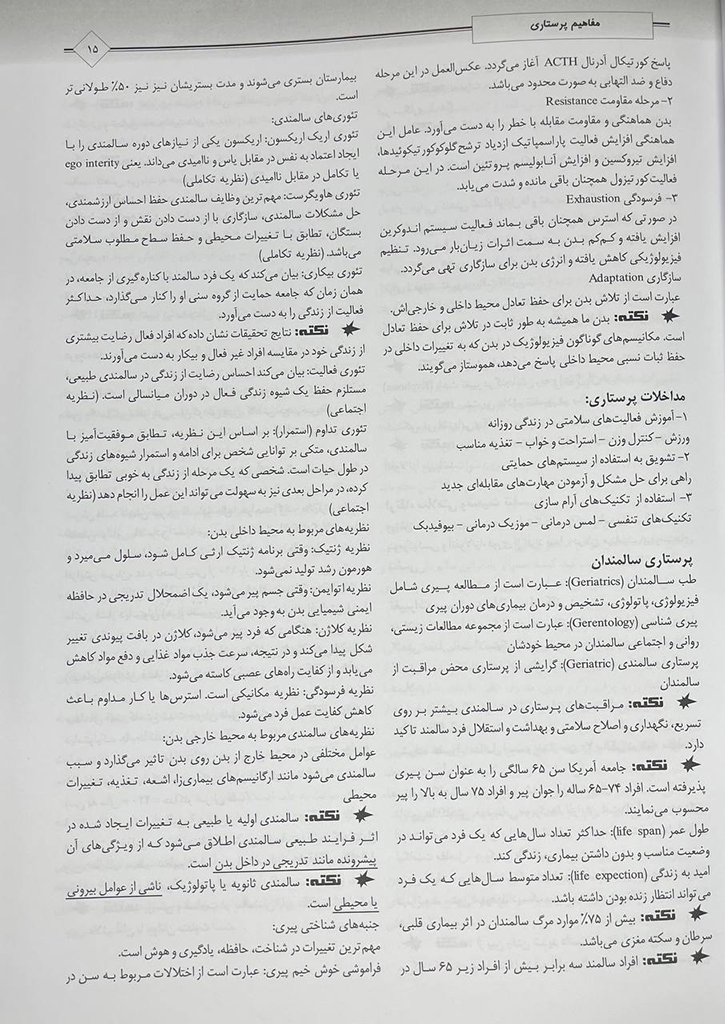 مفاهیم پرستاری
۱۵
پاسخ کورتیکال آدرنال ACTH آغاز می‌گردد. عکس‌العمل در این مرحله
دفاع و ضد التهابی به صورت محدود می‌باشد.
۲- مرحله مقاومت Resistance
بدن هماهنگی و مقاومت مقابله با خطر را به دست می‌آورد. عامل این
هماهنگی افزایش فعالیت پاراسمپاتیک ازدیاد ترشح گلوکوکورتیکوئیدها،
افزایش تیروکسین و افزایش آنابولیسم پروتئین است. در این مرحله
فعالیت کورتیزول همچنان باقی مانده و شدت می‌یابد.
۳- فرسودگی Exhaustion
در صورتی که استرس همچنان باقی بماند فعالیت سیستم اندوکرین
افزایش یافته و کم‌کم بدن به سمت اثرات زیان‌بار می‌رود. تنظیم
فیزیولوژیکی کاهش یافته و انرژی بدن برای سازگاری تهی می‌گردد.
سازگاری Adaptation
عبارت است از تلاش بدن برای حفظ تعادل محیط داخلی و خارجی‌اش.
نکته: بدن ما همیشه به طور ثابت در تلاش برای حفظ تعادل
است. مکانیسم‌های گوناگون فیزیولوژیک در بدن که به تغییرات داخلی در
حفظ ثبات نسبی محیط داخلی پاسخ می‌دهد، هموستاز می‌گویند.
مداخلات پرستاری:
۱- آموزش فعالیت‌های سلامتی در زندگی روزانه
ورزش – کنترل وزن – استراحت و خواب – تغذیه مناسب
۲- تشویق به استفاده از سیستم‌های حمایتی
راهی برای حل مشکل و آزمودن مهارت‌های مقابله‌ای جدید
۳- استفاده از تکنیک‌های آرام سازی
تکنیک‌های تنفسی – لمس درمانی – موزیک درمانی – بیوفیدبک
پرستاری سالمندان
طب سالمندان (Geriatrics): عبارت است از مطالعه پیری شامل
فیزیولوژی، پاتولوژی، تشخیص و درمان بیماری‌های دوران پیری
پیری شناسی (Gerentology): عبارت است از مجموعه مطالعات زیستی،
روانی و اجتماعی سالمندان در محیط خودشان
پرستاری سالمندی (Geriatric): گرایشی از پرستاری محض مراقبت از
سالمندان
نکته: مراقبت‌های پرستاری در سالمندی بیشتر بر روی
تسریع، نگهداری و اصلاح سلامتی و بهداشت و استقلال فرد سالمند تاکید
دارد.
نکته: جامعه آمریکا سن ۶۵ سالگی را به عنوان سن پیری
پذیرفته است. افراد ۷۴-۶۵ ساله را جوان پیر و افراد ۷۵ سال به بالا را پیر
محسوب می‌نمایند.
طول عمر (life span): حداکثر تعداد سال‌هایی که یک فرد می‌تواند در
وضعیت مناسب و بدون داشتن بیماری، زندگی کند.
امید به زندگی (life expection): تعداد متوسط سال‌هایی که یک فرد
می‌تواند انتظار زنده بودن داشته باشد.
نکته: بیش از ۷۵٪ موارد مرگ سالمندان در اثر بیماری قلبی،
سرطان و سکته مغزی می‌باشد.
نکته: افراد سالمند سه برابر بیش از افراد زیر ۶۵ سال در
بیمارستان بستری می‌شوند و مدت بستریشان نیز نیز ۵۰٪ طولانی تر
است.
تئوری‌های سالمندی:
تئوری اریک اریکسون: اریکسون یکی از نیازهای دوره سالمندی را با
ایجاد اعتماد به نفس در مقابل یاس و ناامیدی می‌داند. یعنی ego interity
یا تکامل در مقابل ناامیدی (نظریه تکاملی)
تئوری هاویگرست: مهم‌ترین وظایف سالمندی حفظ احساس ارزشمندی،
حل مشکلات سالمندی، سازگاری با از دست دادن نقش و از دست دادن
بستگان، تطابق با تغییرات محیطی و حفظ سطح مطلوب سلامتی
می‌باشد. (نظریه تکاملی)
تئوری بیکاری: بیان می‌کند که یک فرد سالمند با کناره گیری از جامعه، در
همان زمان که جامعه حمایت از گروه سنی او را کنار می‌گذارد، حداکثر
فعالیت از زندگی را به دست می‌آورد.
نکته: نتایج تحقیقات نشان داده که افراد فعال رضایت بیشتری
از زندگی خود در مقایسه افراد غیر فعال و بیکار به دست می‌آورند.
تئوری فعالیت: بیان می‌کند احساس رضایت از زندگی در سالمندی طبیعی،
مستلزم حفظ یک شیوه زندگی فعال در دوران میانسالی است. (نظریه
اجتماعی)
تئوری تداوم (استمرار): بر اساس این نظریه، تطابق موفقیت‌آمیز با
سالمندی، متکی بر توانایی شخص برای ادامه و استمرار شیوه‌های زندگی
در طول حیات است. شخصی که یک مرحله از زندگی به خوبی تطابق پیدا
کرده، در مراحل بعدی نیز به سهولت می‌تواند این عمل را انجام دهد (نظریه
اجتماعی)
نظریه‌های مربوط به محیط داخلی بدن:
نظریه ژنتیک: وقتی برنامه ژنتیک ارثی کامل شود، سلول می‌میرد و
هورمون رشد تولید نمی‌شود.
نظریه اتوایمن: وقتی جسم پیر می‌شود، یک اضمحلال تدریجی در حافظه
ایمنی شیمیایی بدن به وجود می‌آید.
نظریه کلاژن: هنگامی که فرد پیر می‌شود، کلاژن در بافت پیوندی تغییر
شکل پیدا می‌کند و در نتیجه، سرعت جذب مواد غذایی و دفع مواد کاهش
می‌یابد و از کفایت راه‌های عصبی کاسته می‌شود.
نظریه فرسودگی: نظریه مکانیکی است. استرس‌ها یا کار مداوم باعث
کاهش کفایت عمل فرد می‌شود.
نظریه‌های سالمندی مربوط به محیط خارجی بدن:
عوامل مختلفی در محیط خارج از بدن روی بدن تاثیر می‌گذارد و سبب
سالمندی می‌شود مانند ارگانیسم‌های بیماری‌زا، اشعه، تغذیه، تغییرات
محیطی
نکته: سالمندی اولیه یا طبیعی به تغییرات ایجاد شده در
اثر فرایند طبیعی سالمندی اطلاق می‌شود که از ویژگی‌های آن
پیشرونده مانند تدریجی در داخل بدن است.
نکته: سالمندی ثانویه یا پاتولوژیک، ناشی از عوامل بیرونی
یا محیطی است.
جنبه‌های شناختی پیری:
مهم‌ترین تغییرات در شناخت، حافظه، یادگیری و هوش است.
فراموشی خوش خیم پیری: عبارت است از اختلالات مربوط به سن در